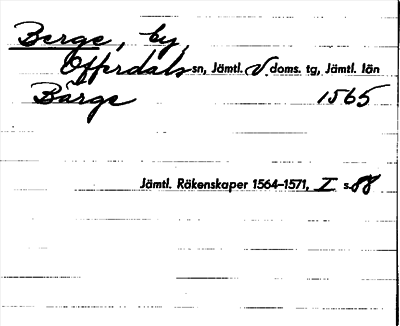 Berge, by,
Offerdals sn, Jämtl. V. doms. tg, Jämtl. län
Bårge 1565
Jämtl. Räkenskaper 1564–1571, I s. 88